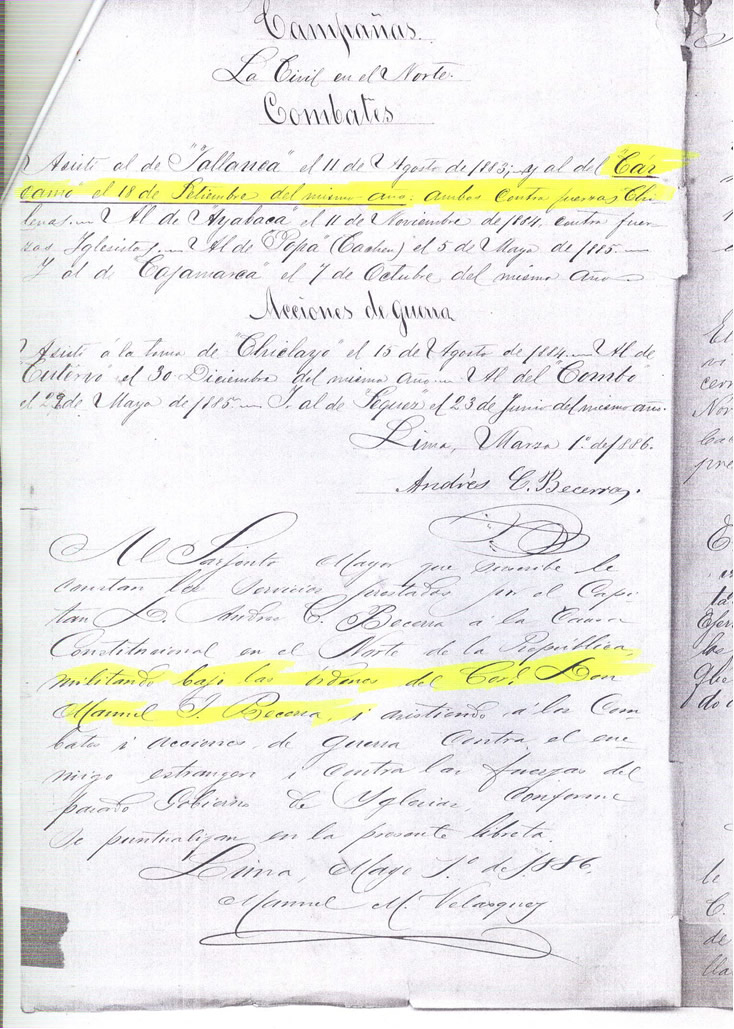 Campañas.
La Civil en el Norte.
Combates
Asistí al de "Tallanca" el 11 de Agosto de 1883; y al del "Cár
camo" el 18 de Setiembre del mismo año: ambos contra fuerzas Chi
lenas. Al de Ayabaca" el 11 de Noviembre de 1884, contra fuer
zas Iglesistas. Al de "Popa" el 5 de Mayo de 1885.
Y al de "Cajamarca" el 7 de Octubre del mismo año
Acciones de guerra
Asistí á la toma de "Chiclayo" el 15 de Agosto de 1884. Al de
"Cutervo" el 30 Diciembre del mismo año. Al del "Combo"
el de Mayo de 1885. Y al de el 23 de Junio del mismo año.
Lima, Marzo 1º de 1886.
Andrés C. Becerra.
Al Sarjento Mayor que suscribe le
constan los servicios prestados por el Capi
tan D. Andres C. Becerra á la Causa
Constitucional en el Norte de la República,
militando bajo las órdenes del Corl. Don
Manuel J. Becerra, i asistiendo á los Com
bates i acciones de guerra contra el ene
migo estrangero i contra las fuerzas del
pasado Gobierno de Yglesias, Conforme
Se puntualizan en la presente libreta.
Lima, Mayo 1º de 1886.
Manuel M. Velasquez